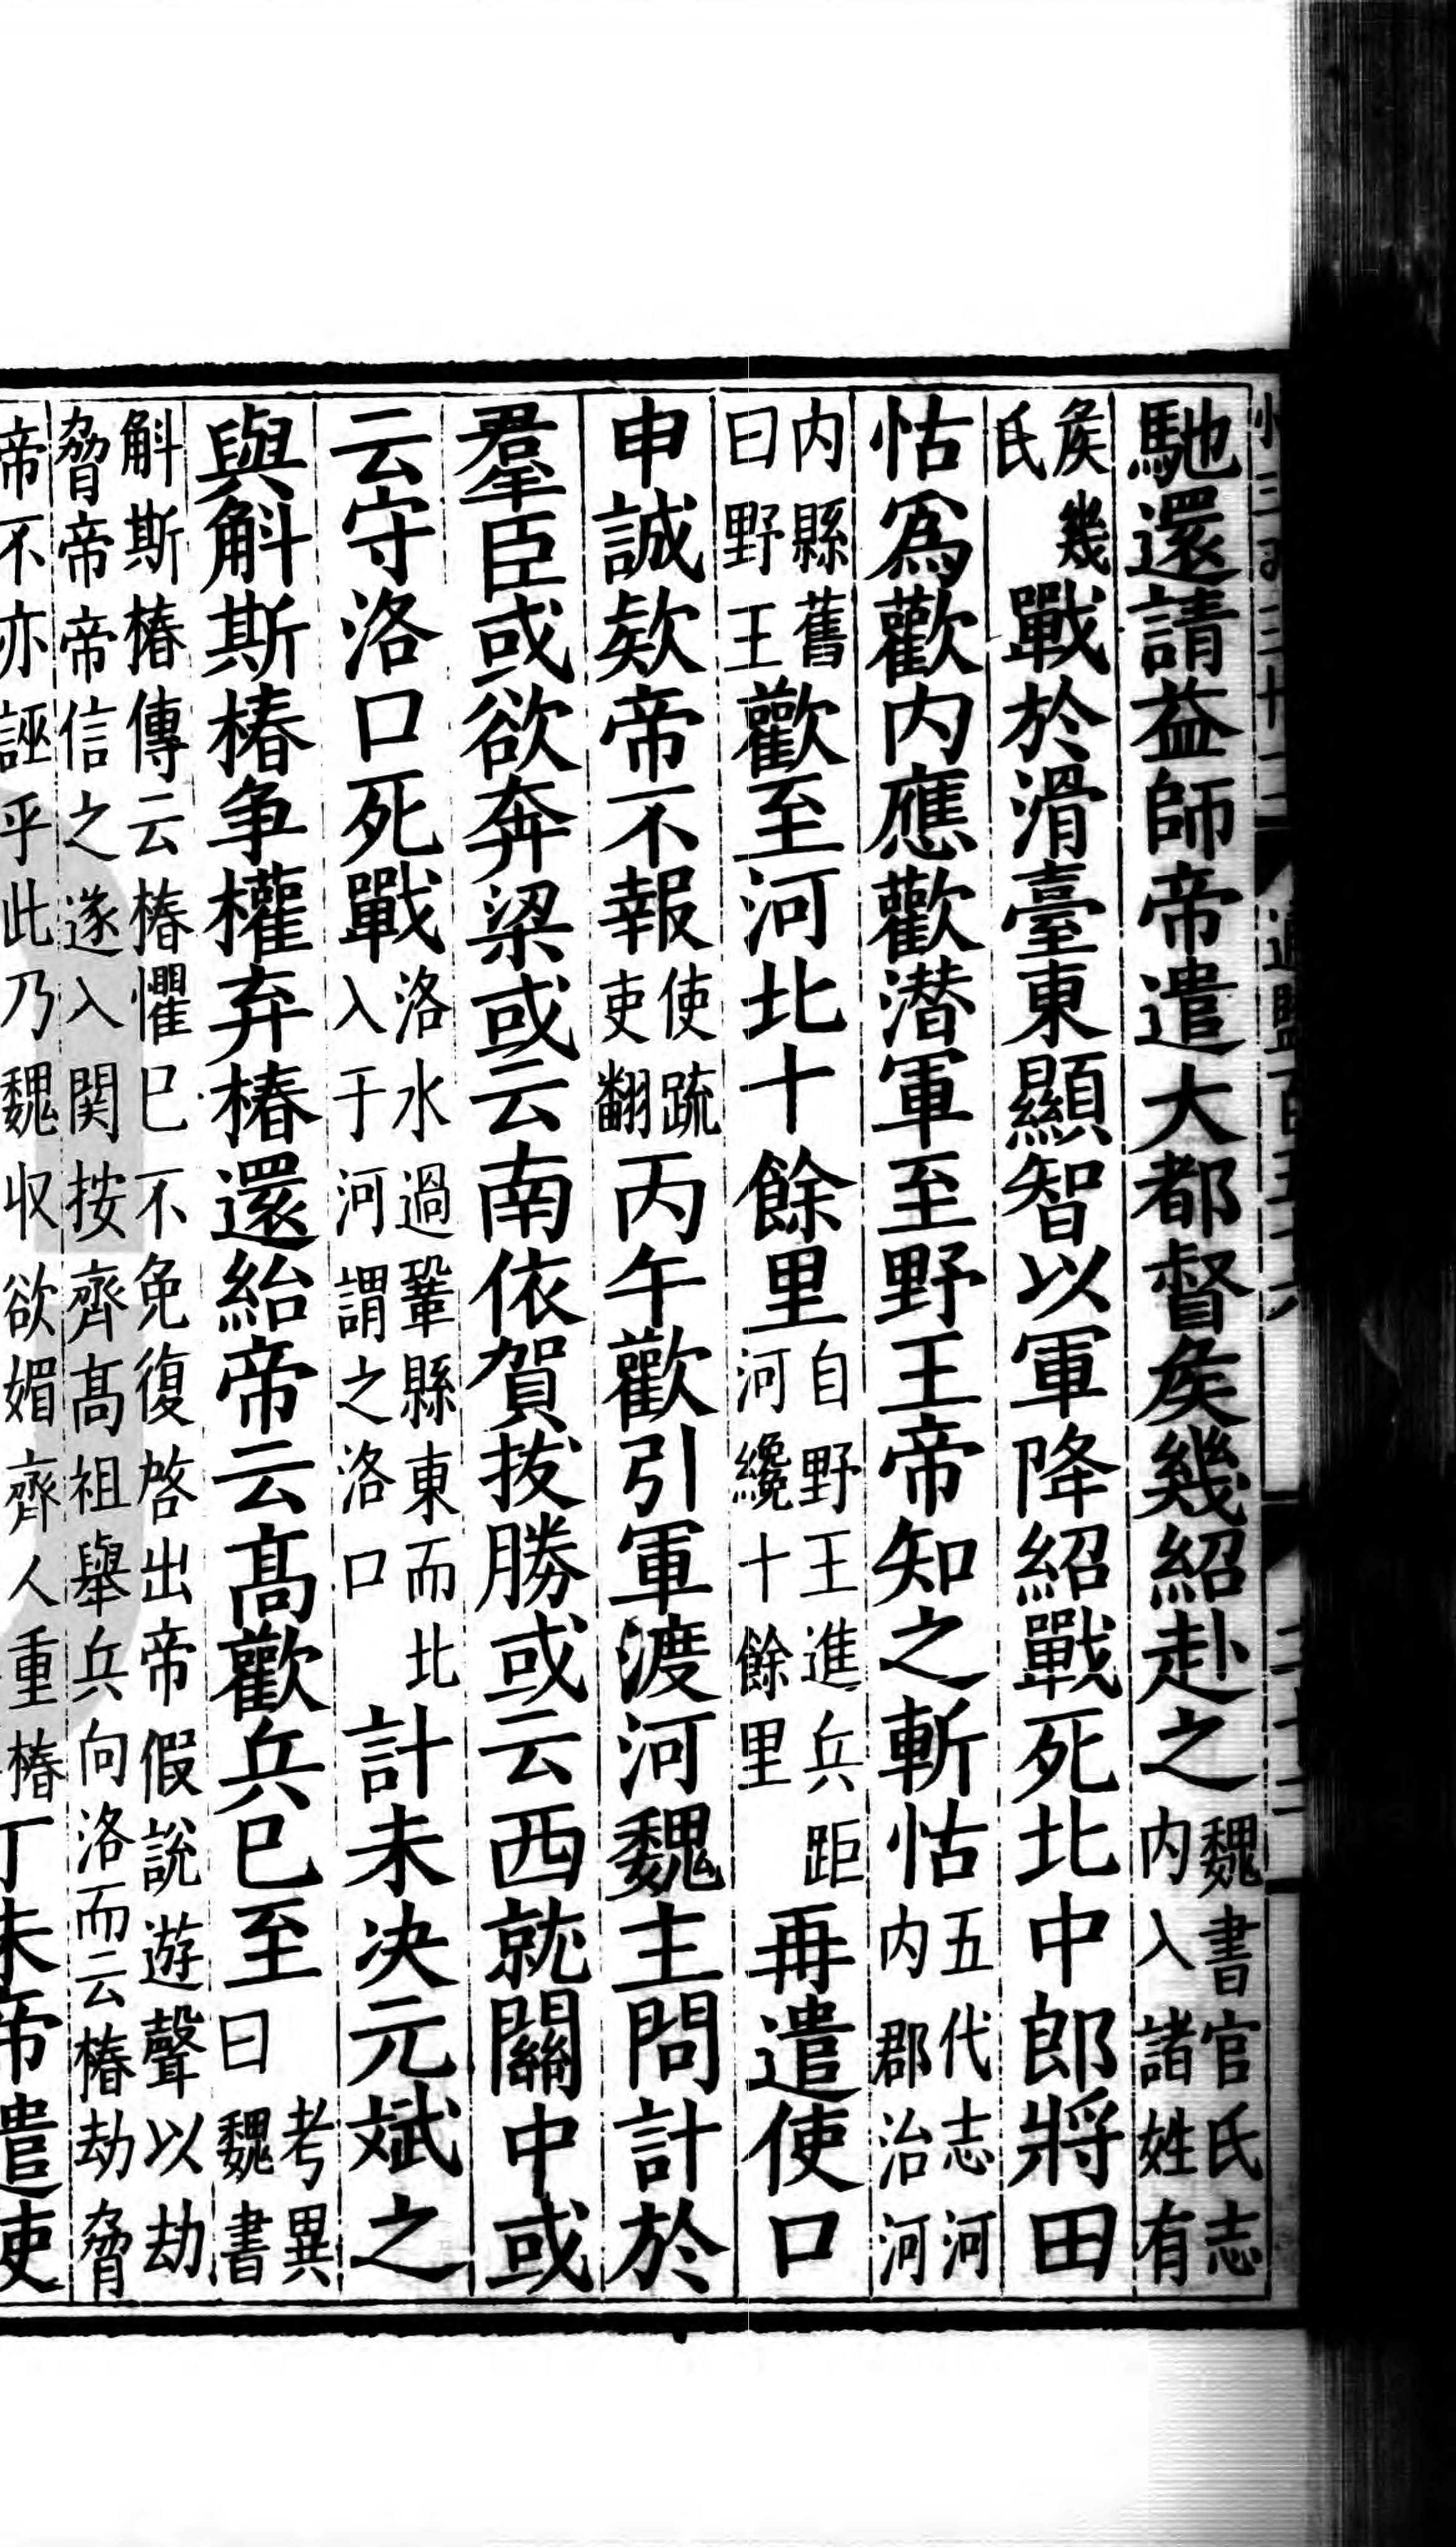 馳還請益師帝遣大都督矦幾紹赴之魏書官氏志内入諸姓有
矦幾氏戰於滑臺東顯智以軍降紹戰死北中郎將田
怙爲歡内應歡潜軍至野王帝知之斬怙五代志河内郡治河
内縣舊曰野王歡至河北十餘里自野王進兵距河纔十餘里再遣使口
申誠欵帝不報使疏吏翻丙午歡引軍渡河魏主問計於
羣臣或欲奔梁或云南依賀拔勝或云西就關中或
云守洛口死戰洛水過鞏縣東而北入于河謂之洛口計未决元斌之
與斛斯椿争權弃椿還紿帝云髙歡兵已至考異曰魏書
斛斯椿傳云椿懼已不免復啓出帝假説遊聲以劫脅帝帝信之遂入関按齊髙祖舉兵向洛而云椿劫脅
帝不亦誣乎此乃魏収欲媚齊人重椿丁未帝遣使